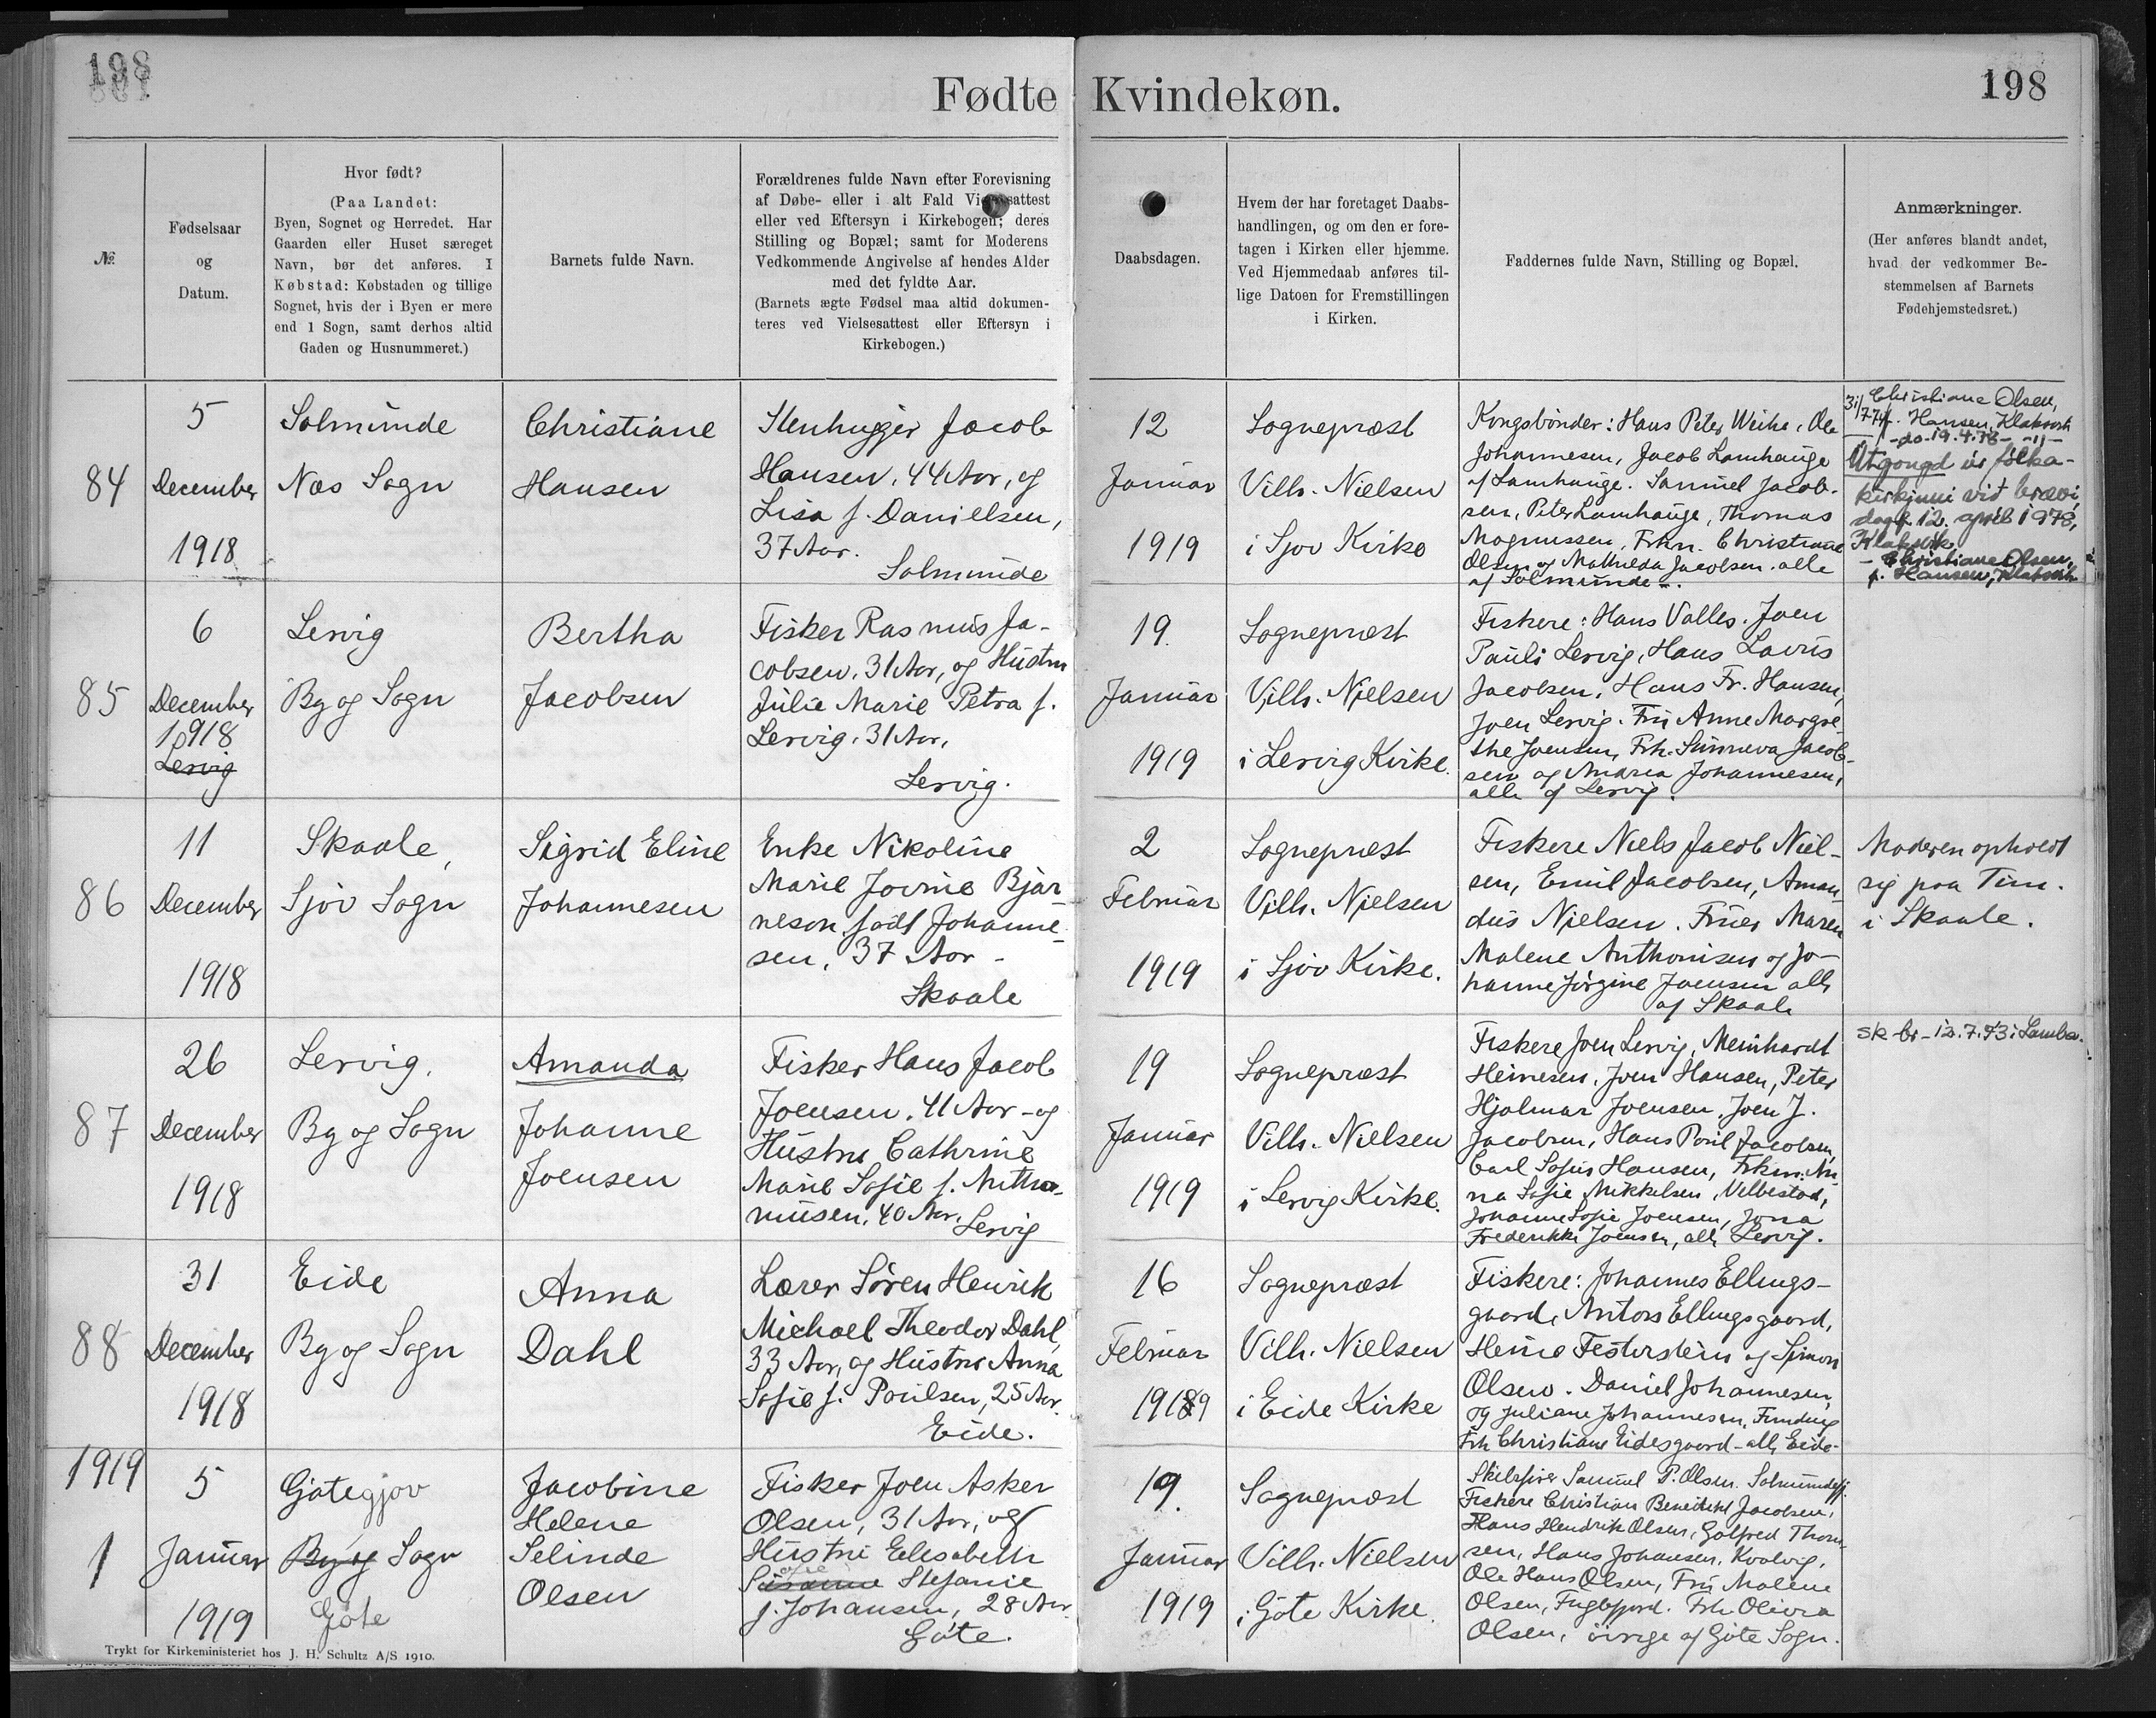 198
198
Fødte Kvindekøn.
№.
Fødselsaar
og
Datum.
Hvor født?
(Paa Landet:
Byen, Sognet og Herredet. Har
Gaarden eller Huset særeget
Navn, bør det anføres. I
Købstad: Købstaden og tillige
Sognet, hvis der i Byen er mere
end 1 Sogn, samt derhos altid
Gaden og Husnummeret.)
Barnets fulde Navn.
Forældrenes fulde Navn efter Forevisning
af Døbe- eller i alt Fald Vielsesattest
eller ved Eftersyn i Kirkebogen; deres
Stilling og Bopæl; samt for Moderens
Vedkommende Angivelse af hendes Alder
med det fyldte Aar.
(Barnets ægte Fødsel maa altid dokumen-
teres ved Vielsesattest eller Eftersyn i
Kirkebogen.)
Daabsdagen.
Hvem der har foretaget Daabs-
handlingen, og om den er fore-
tagen i Kirken eller hjemme.
Ved Hjemmedaab anføres til-
lige Datoen for Fremstillingen
i Kirken.
Faddernes fulde Navn, Stilling og Bopæl.
Anmærkninger.
(Her anføres blandt andet,
hvad der vedkommer Be-
stemmelsen af Barnets
Fødehjemstedsret.)
84
5
December
1918
Solmunde
Næs Sogn
Christiane
Hansen
Stenhugger Jacob
Hansen, 44 Aar, og
Lisa f. Daniellsen,
37 Aar.
Solmunde
12
Januar
1919
Sognepræst
Vilh. Nielsen
i Sjov Kirke
Kongsbönder: Hans Peter Weihe, Ole
Johannesen, Jacob Lamhauge
af Lamhauge. Samuel Jacob-
sen, Peter Lamhauge, Thomas
Magnussen, Frkn. Christiane
Olsen og Mathilda Jacobsen. alle
af Solmunde.
Christiane Olsen,
f. Hansen, Klaksvik
-do- 19.4.78 -"-
Útgongd úr fólka-
kirkjuni við brævi
dagf. 12. apríl 1978,
Klaksvík
- Christiane Olsen,
f. Hansen, Klaksvik
85
6
December
1918
Lervig
Lervig
By og Sogn
Bertha
Jacobsen
Fisker Rasmus Ja-
cobsen, 31 Aar, og Hustru
Julie Marie Petra f.
Lervig, 31 Aar,
Lervig.
19.
Januar
1919
Sognepræst
Vilh. Nielsen
i Lervig Kirke.
Fiskere: Hans Valles. Joen
Pauli Lervig, Hans Lavus
Jacobsen, Hans Fr. Hansen,
Joen Lervig. Fru Anne Margre-
the Joensen, Frk. Sunneva Jacob-
sen og Maria Johannesen,
alle af Lervig.
86
11
December
1918
Skaale,
Sjov Sogn
Sigrid Eline
Johannesen
Enke Nikoline
Marie Jovine Bjar-
neson, født Johanne-
sen, 37 Aar -
Skaale
2
Februar
1919
Sognepræst
Vilh. Nielsen
i Sjov Kirke.
Fiskere Niels Jacob Niel-
sen, Emil Jacobsen, Aman-
dus Nielsen. Fruer Maren
Malene Anthonisen og Jo-
hanne Jörgine Joensen alle
af Skaale
Moderen opholdt
sig paa Tim.
i Skaale.
87
26
December
1918
Lervig.
By og Sogn
Amanda
Johanne
Joensen
Fisker Hans Jacob
Joensen, 41 Aar - og
Hustru Cathrine
Marie Sofie f. Antho-
niusen, 40 Aar,
Lervig
19
Januar
1919
Sognepræst
Vilh. Nielsen
i Lervig Kirke.
Fiskere Joen Lervig, Meinhardt
Heinesen, Joen Hansen, Peter
Hjalmar Joensen, Joen J.
Jacobsen, Hans Poul Jacobsen,
Carl Sofus Hansen, Frkn: An-
na Sofie Mikkelsen, Velbestad,
Johanne Sofie Joensen, Jona
Frederikke Joensen, alle Lervig.
sk br - 12.7.43 i Lamba.
88
31
December
1918
Eide
By og Sogn
Anna
Dahl
Lærer Søren Henrik
Michael Theodor Dahl,
33 Aar, og Hustru Anna
Sofie f. Poulsen, 25 Aar.
Eide.
16
Februar
1919
Sognepræst
Vilh. Nielsen
i Eide Kirke
Fiskere: Johannes Ellings-
gaard, Antons Ellingsgaard,
Heine Festerstein og Simon
Olsen. Daniel Johannesen,
og Juliane Johannesen, Funding
Frk Christiane Eidesgaard - alle Eide.
1919
1
5
Januar
1919
Götegjov
By og Sogn
Göte
Jacobine
Helene
Selinde
Olsen
Fisker Joen Asker
Olsen, 31 Aar, og
Hustru Elisabeth
Susanne Stefanie
f. Johansen, 28 Aar.
Göte.
19.
Januar
1919
Sognepræst
Vilh. Nielsen
i Göte Kirke.
Skibsfører Samuel P. Olsen. Solmundefj.
Fiskere Christian Benedikt Jacobsen,
Hans Hendrik Olsen, Golfred Thom-
sen, Hans Johansen, Kvalvig,
Ole Hans Olsen, Fru Malene
Olsen, Fuglefjord. Frk Olivia
Olsen, övrige af Göte Sogn.
Trykt for Kirkeministeriet hos J. H. Schultz A/S 1910.